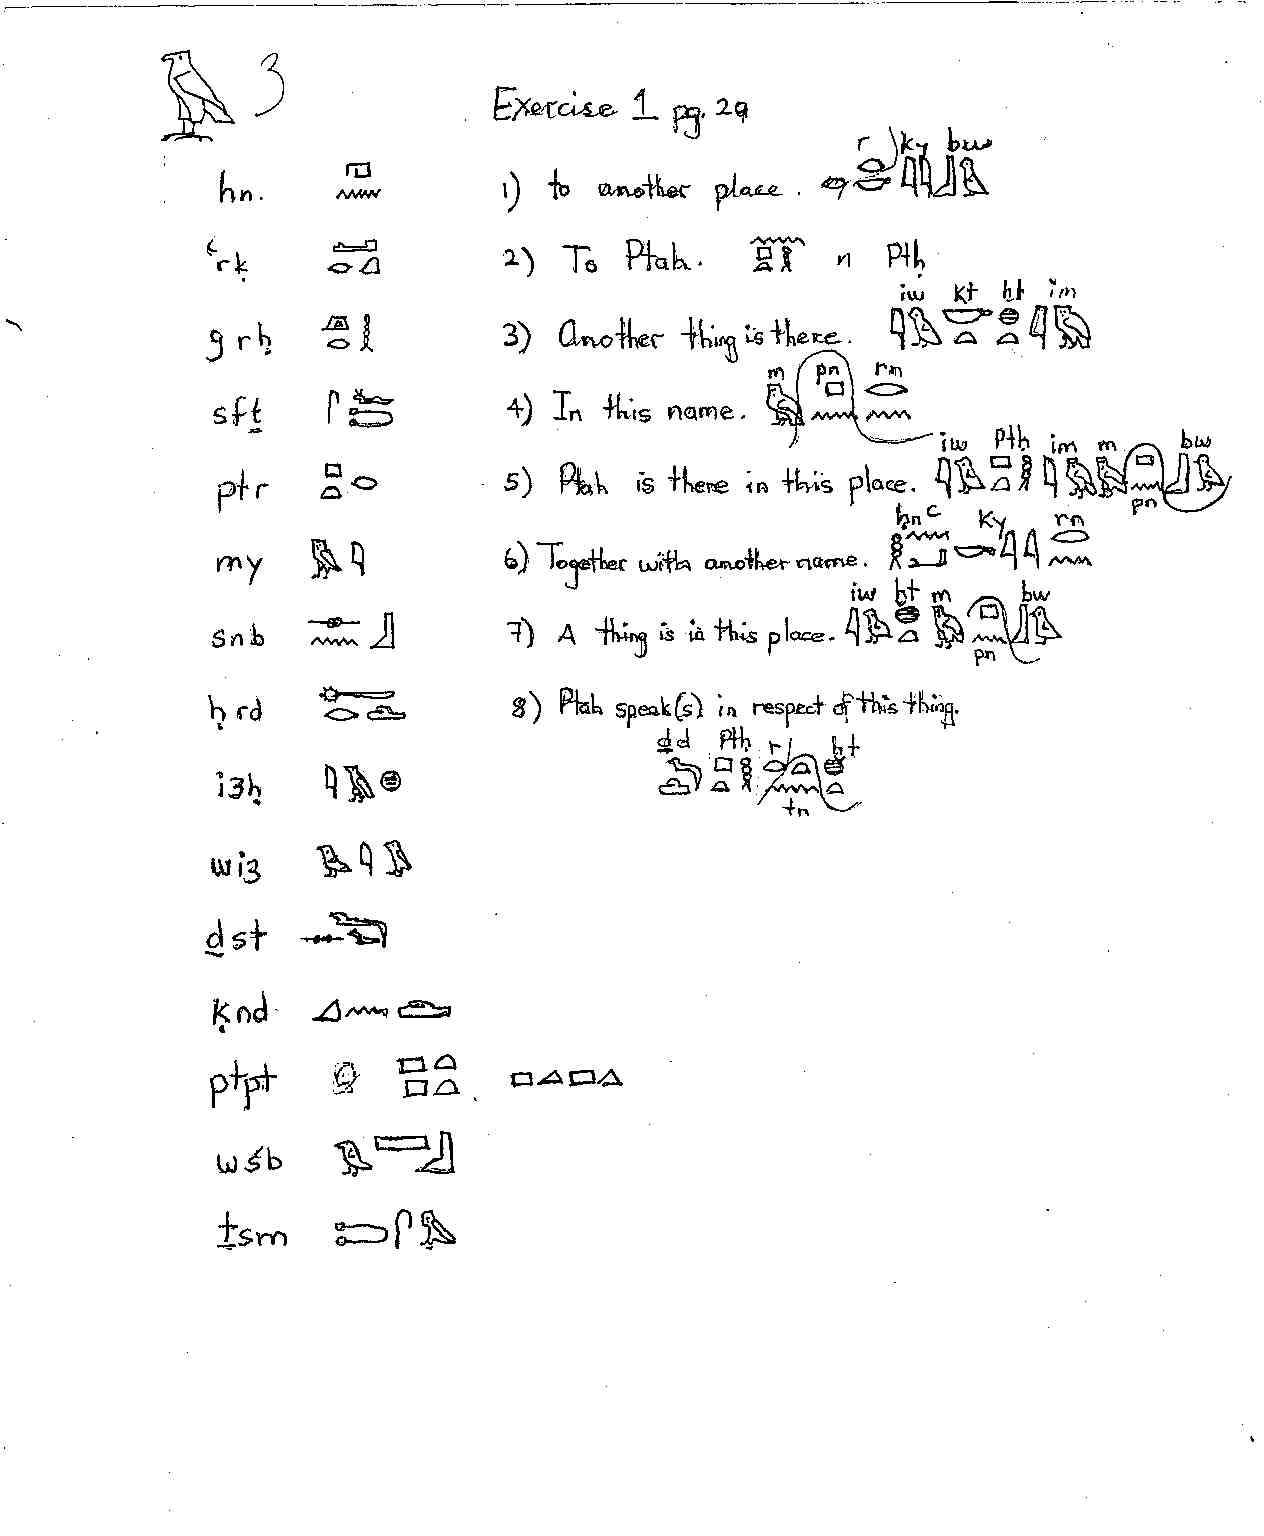 3
Exercise 1 pg. 29
hn.
ꜥrḳ
grḥ
sfṯ
ptr
my
snb
ẖrd
i3ḫ
wi3
ḏst
ḳnd
ptpt
wśb
ṯsm
r ky bw
1) to another place.
2) To Ptah. n Ptḥ
iw kt ḫt im
3) Another thing is there.
m pn rn
4) In this name.
iw Ptḥ im m bw
5) Ptah is there in this place.
pn
ḥnꜥ ky rn
6) Together with another name.
iw ḫt m bw
7) A thing is in this place.
pn
8) Ptah speak(s) in respect of this thing.
ḏd Ptḥ r ḫt
tn